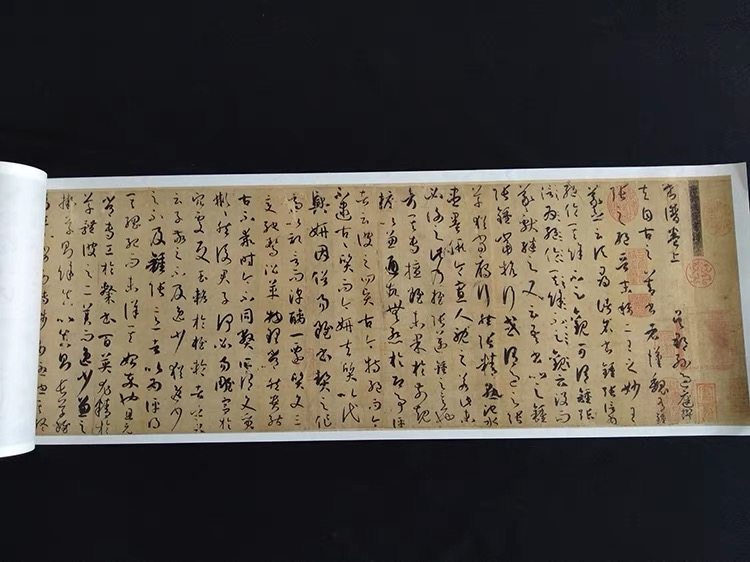 書譜卷上 吳郡孫過庭撰
夫自古之善書者漢魏有鍾
張之絕晉末稱二王之妙王
羲之云頃尋諸名書鍾張信為
絕倫其餘不足觀可謂鍾張云沒而
羲獻繼之又云吾書比之鍾
張鍾當抗行或謂過之張
草猶當雁行然張精熟池水
盡墨假令寡人耽之若此未
必謝之此乃推張邁鍾之意也
考其專擅雖未果於前規
摭以兼通故無慚於即事評
者云彼之四賢古今特絕而今
不逮古古質而今妍夫質以代
興妍因俗易雖書契之作
適以記言而淳醨一遷質文三
變馳騖沿革物理常然貴能
古不乖時今不同弊所謂文質
彬彬然後君子何必易雕宮於
穴處反玉輅於椎輪者乎又
云子敬之不及逸少猶逸少
之不及鍾張意者以為評得
其綱紀而未詳其始卒也且元
常專工於隸書百英尤精於
草體彼之二美而逸少兼之
擬草則餘真比真則長草雖